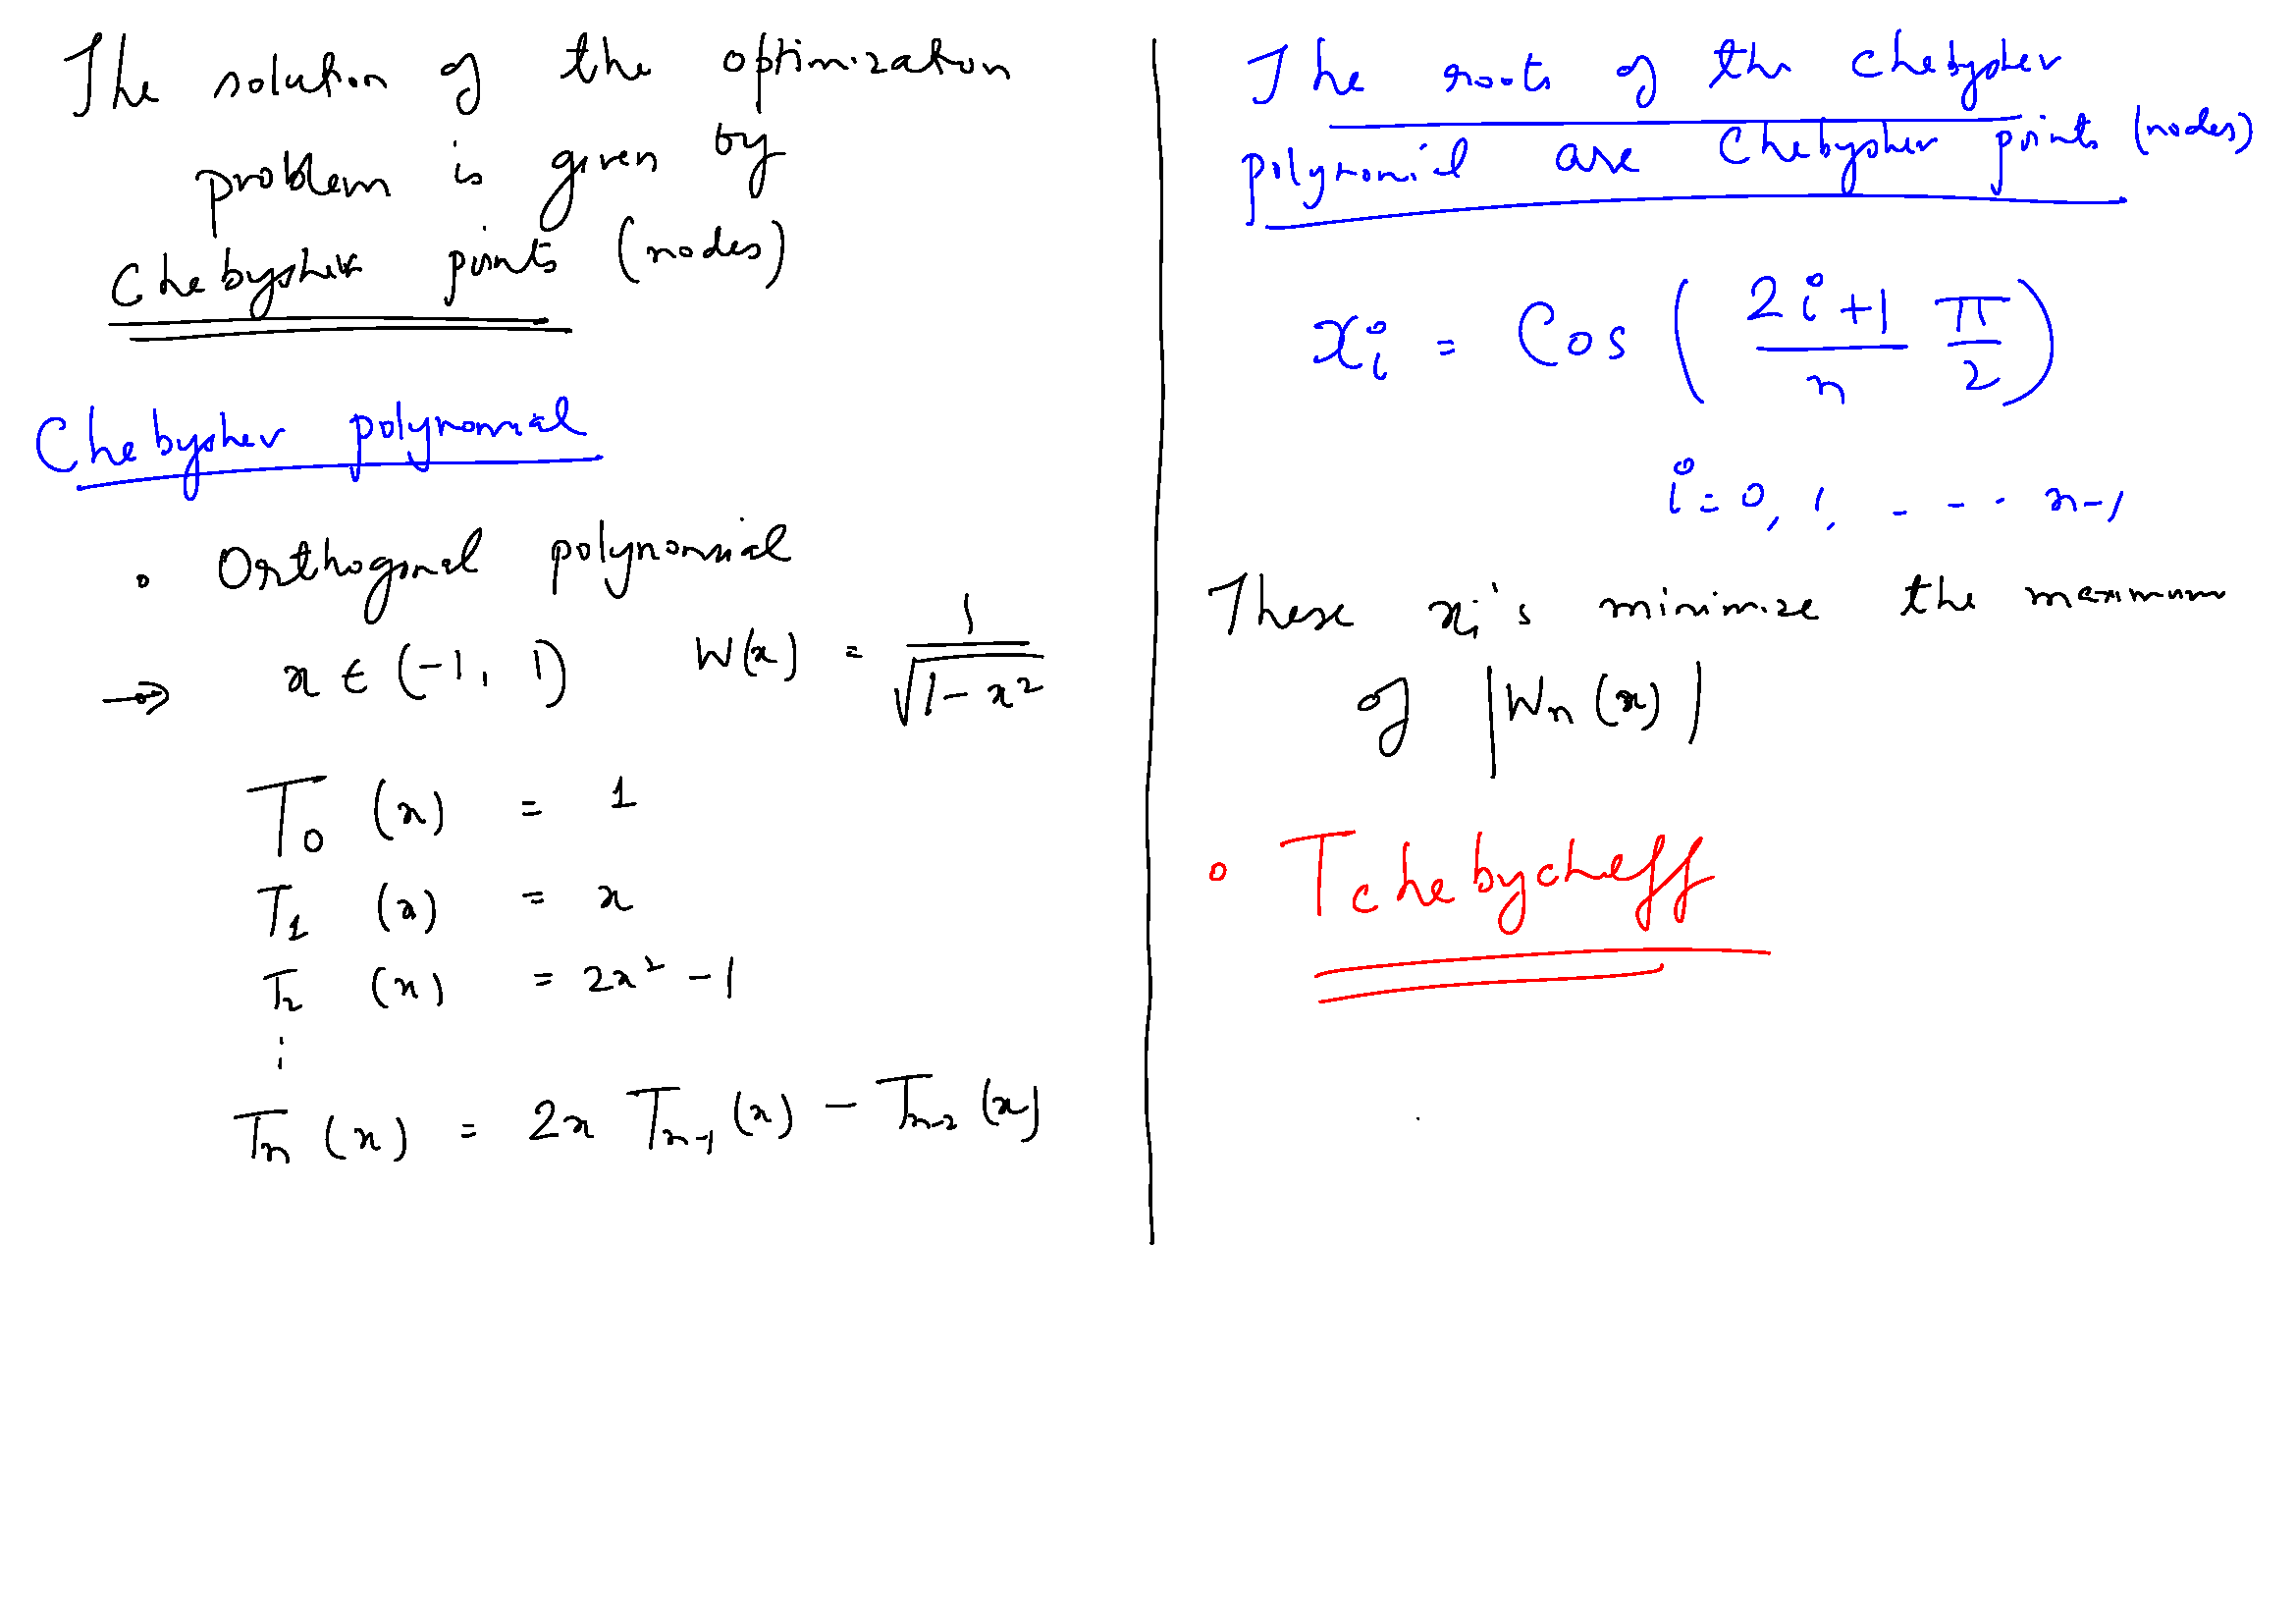 The solution of the optimization
problem is given by
Chebyshev points (nodes)
Chebyshev polynomial
• Orthogonal polynomial
→ x ∈ (-1, 1) W(x) = 1/√(1-x²)
T₀ (x) = 1
T₁ (x) = x
T₂ (x) = 2x² - 1
⋮
Tₙ (x) = 2x Tₙ₋₁ (x) - Tₙ₋₂ (x)
The roots of the Chebyshev
polynomial are Chebyshev points (nodes)
xᵢ = Cos ( (2i+1)/n π/2 )
i = 0, 1, - - - n-1
These xᵢ's minimize the maximum
of |Wₙ(x)|
• Tchebycheff